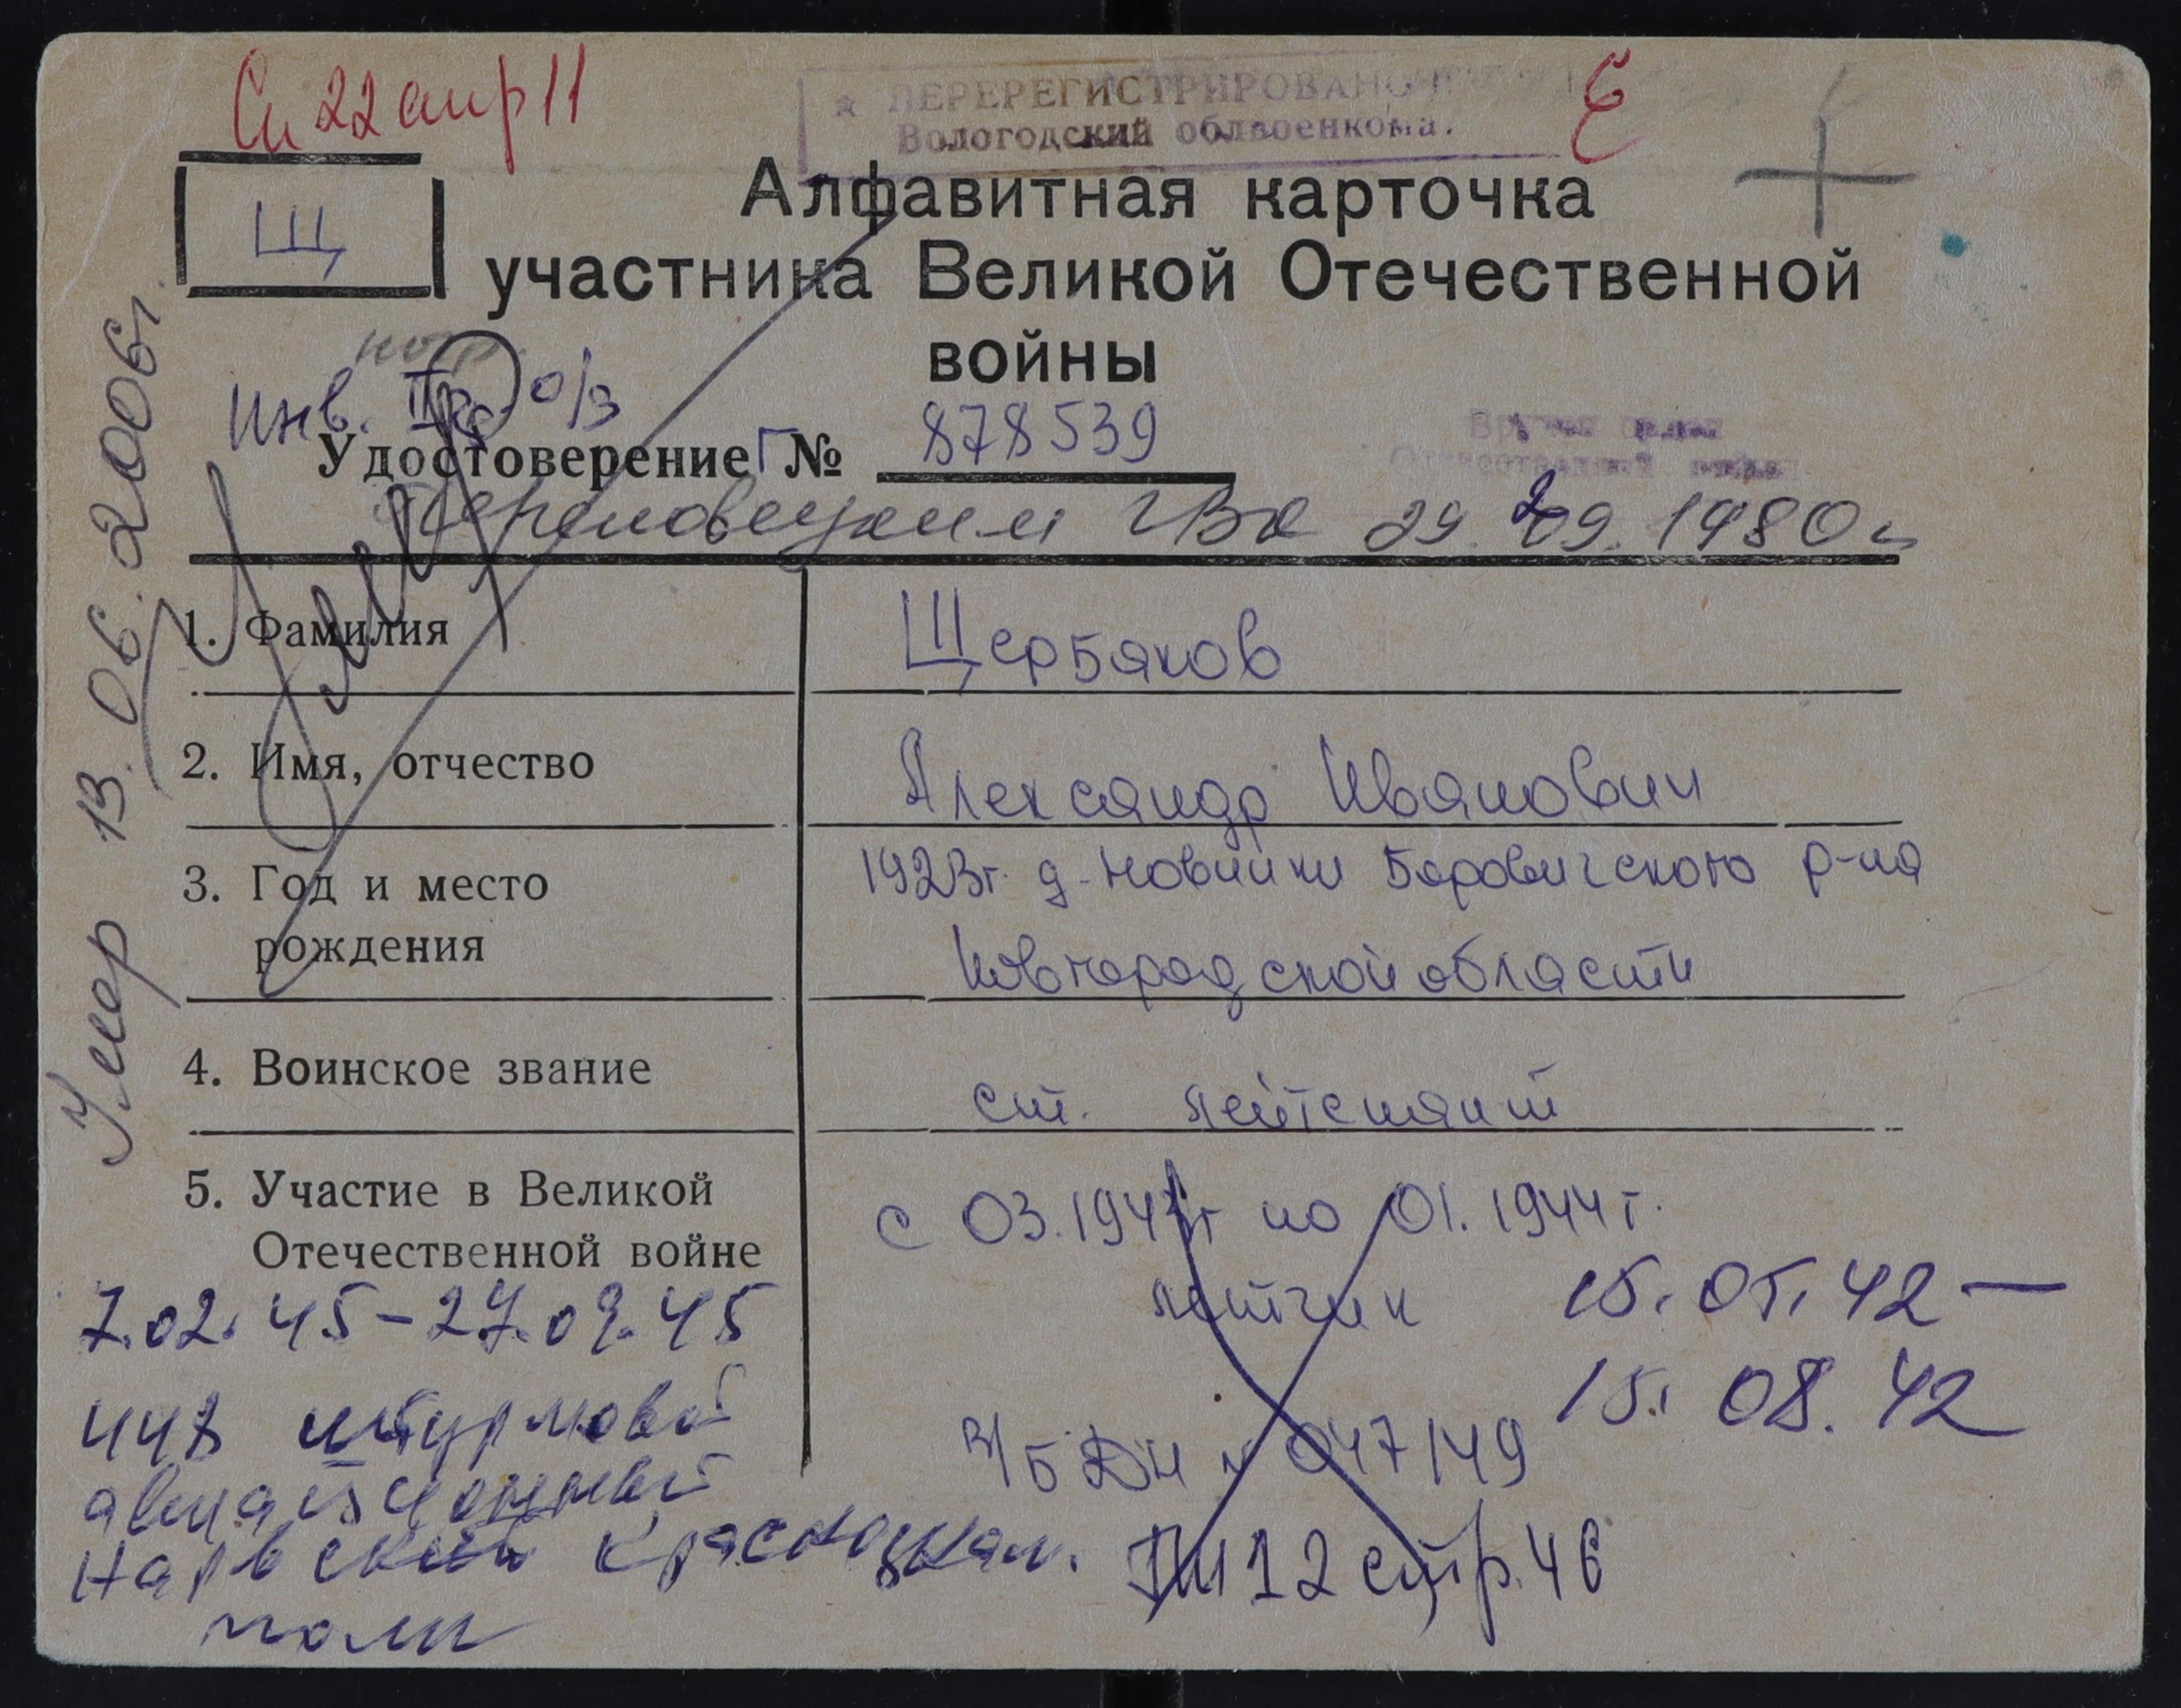 Сп 22 стр 11
Е
ПЕРЕРЕГИСТРИРОВАНО
Вологодский облвоенкома.
Щ
Алфавитная карточка
участника Великой Отечественной
войны
Инв. II о/з
Удостоверение Г № 878539
Череповецким ГВК 29.09.1980г
1. Фамилия
Щербаков
2. Имя, отчество
Александр Иванович
3. Год и место
рождения
1923г. д. Новинки Боровичского р-на
Новгородской области
4. Воинское звание
ст. лейтенант
5. Участие в Великой
Отечественной войне
с 03.1943г по 01.1944г.
летчик
15.05.42 —
15.08.42
7.02.45-27.09.45
448 штурмовой
авиационный
Нарвский Краснознам.
полк
в/б № 047149
12 стр. 46
Умер 13.06.2006г.